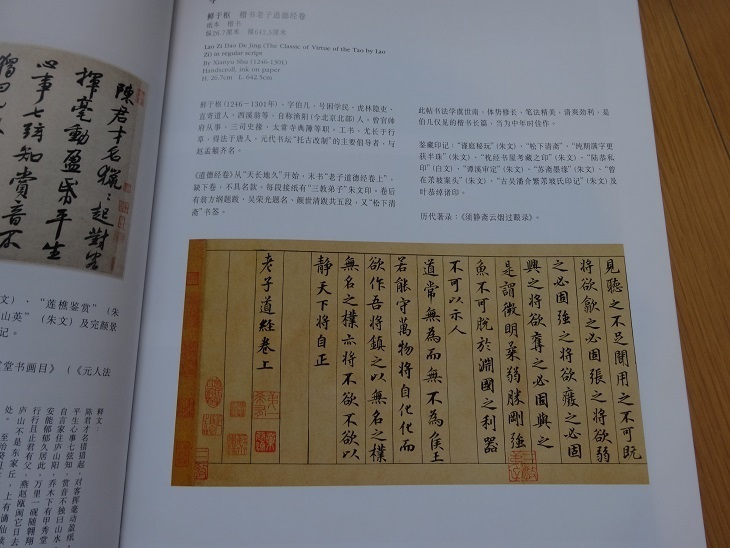 陳君才名獵〻起對客
揮毫動盈帋平生
心事七絃知賞音不
文）、“莲樵鉴赏”（朱
山英”（朱文）及完颜景
记。
堂书画目》（《元人法
释文：
陈君才名猎猎起，对客挥毫动盈纸。
平生心事七弦知，赏音不独曰山水。
自言家住庐山阳，乔木下有甲秀堂
安能郁郁久居此，万里一砚随翱翔
行行且止君有父，燕赵瓯闽它日去
庐山不是东家丘，上有谪仙读
处。 至治癸亥
鲜于枢 楷书老子道德经卷
纸本 楷书
纵26.7厘米 横642.5厘米
Lao Zi Dao De Jing (The Classic of Virtue of the Tao by Lao
Zi) in regular script
By Xianyu Shu (1246-1301)
Handscroll, ink on paper
H. 26.7cm L. 642.5cm
鲜于枢（1246－1301年），字伯几，号困学民、虎林隐吏、
直寄道人、西溪翁等，自称渔阳（今北京北部）人，曾官帅
府从事、三司史掾、太常寺典簿等职。工书，尤长于行
草，得法于唐人，元代书坛“托古改制”的主要倡导者，与
赵孟頫齐名。
《道德经卷》从“天长地久”开始，末书“老子道德经卷上”，
缺下卷，不具名款。每段接纸有“三教弟子”朱文印。卷后
有前方纲题跋、吴荣光题名、颜世清跋共五段，又“松下清
斋”书签。
此帖书法学虞世南，体势修长，笔法精美，清爽劲利，是
伯几仅见的楷书长篇，当为中年时佳作。
鉴藏印记：“蒉庭秘玩”（朱文）、“松下清斋”、“纯期满字更
获半珠”（朱文）、“枕经书屋考藏之印”（朱文）、“陆恭私
印”（白文）、“谭溪审定”（朱文）、“苏斋墨缘”（朱文）、“曾
在茮坡案头”（朱文）、“古吴潘介繁茮坡氏印记”（朱文）及
叶恭绰诸印。
历代著录：《须静斋云烟过眼录》。
見聽之不足聞用之不可既
將欲歙之必固張之將欲弱
之必固強之將欲廢之必固
興之將欲奪之必固與之
是謂微明柔弱勝剛強
魚不可脫於淵國之利器
不可以示人
道常無為而無不為侯王
若能守萬物將自化化而
欲作吾將鎮之以無名之樸
無名之樸亦將不欲不欲以
靜天下將自正
老子道經卷上